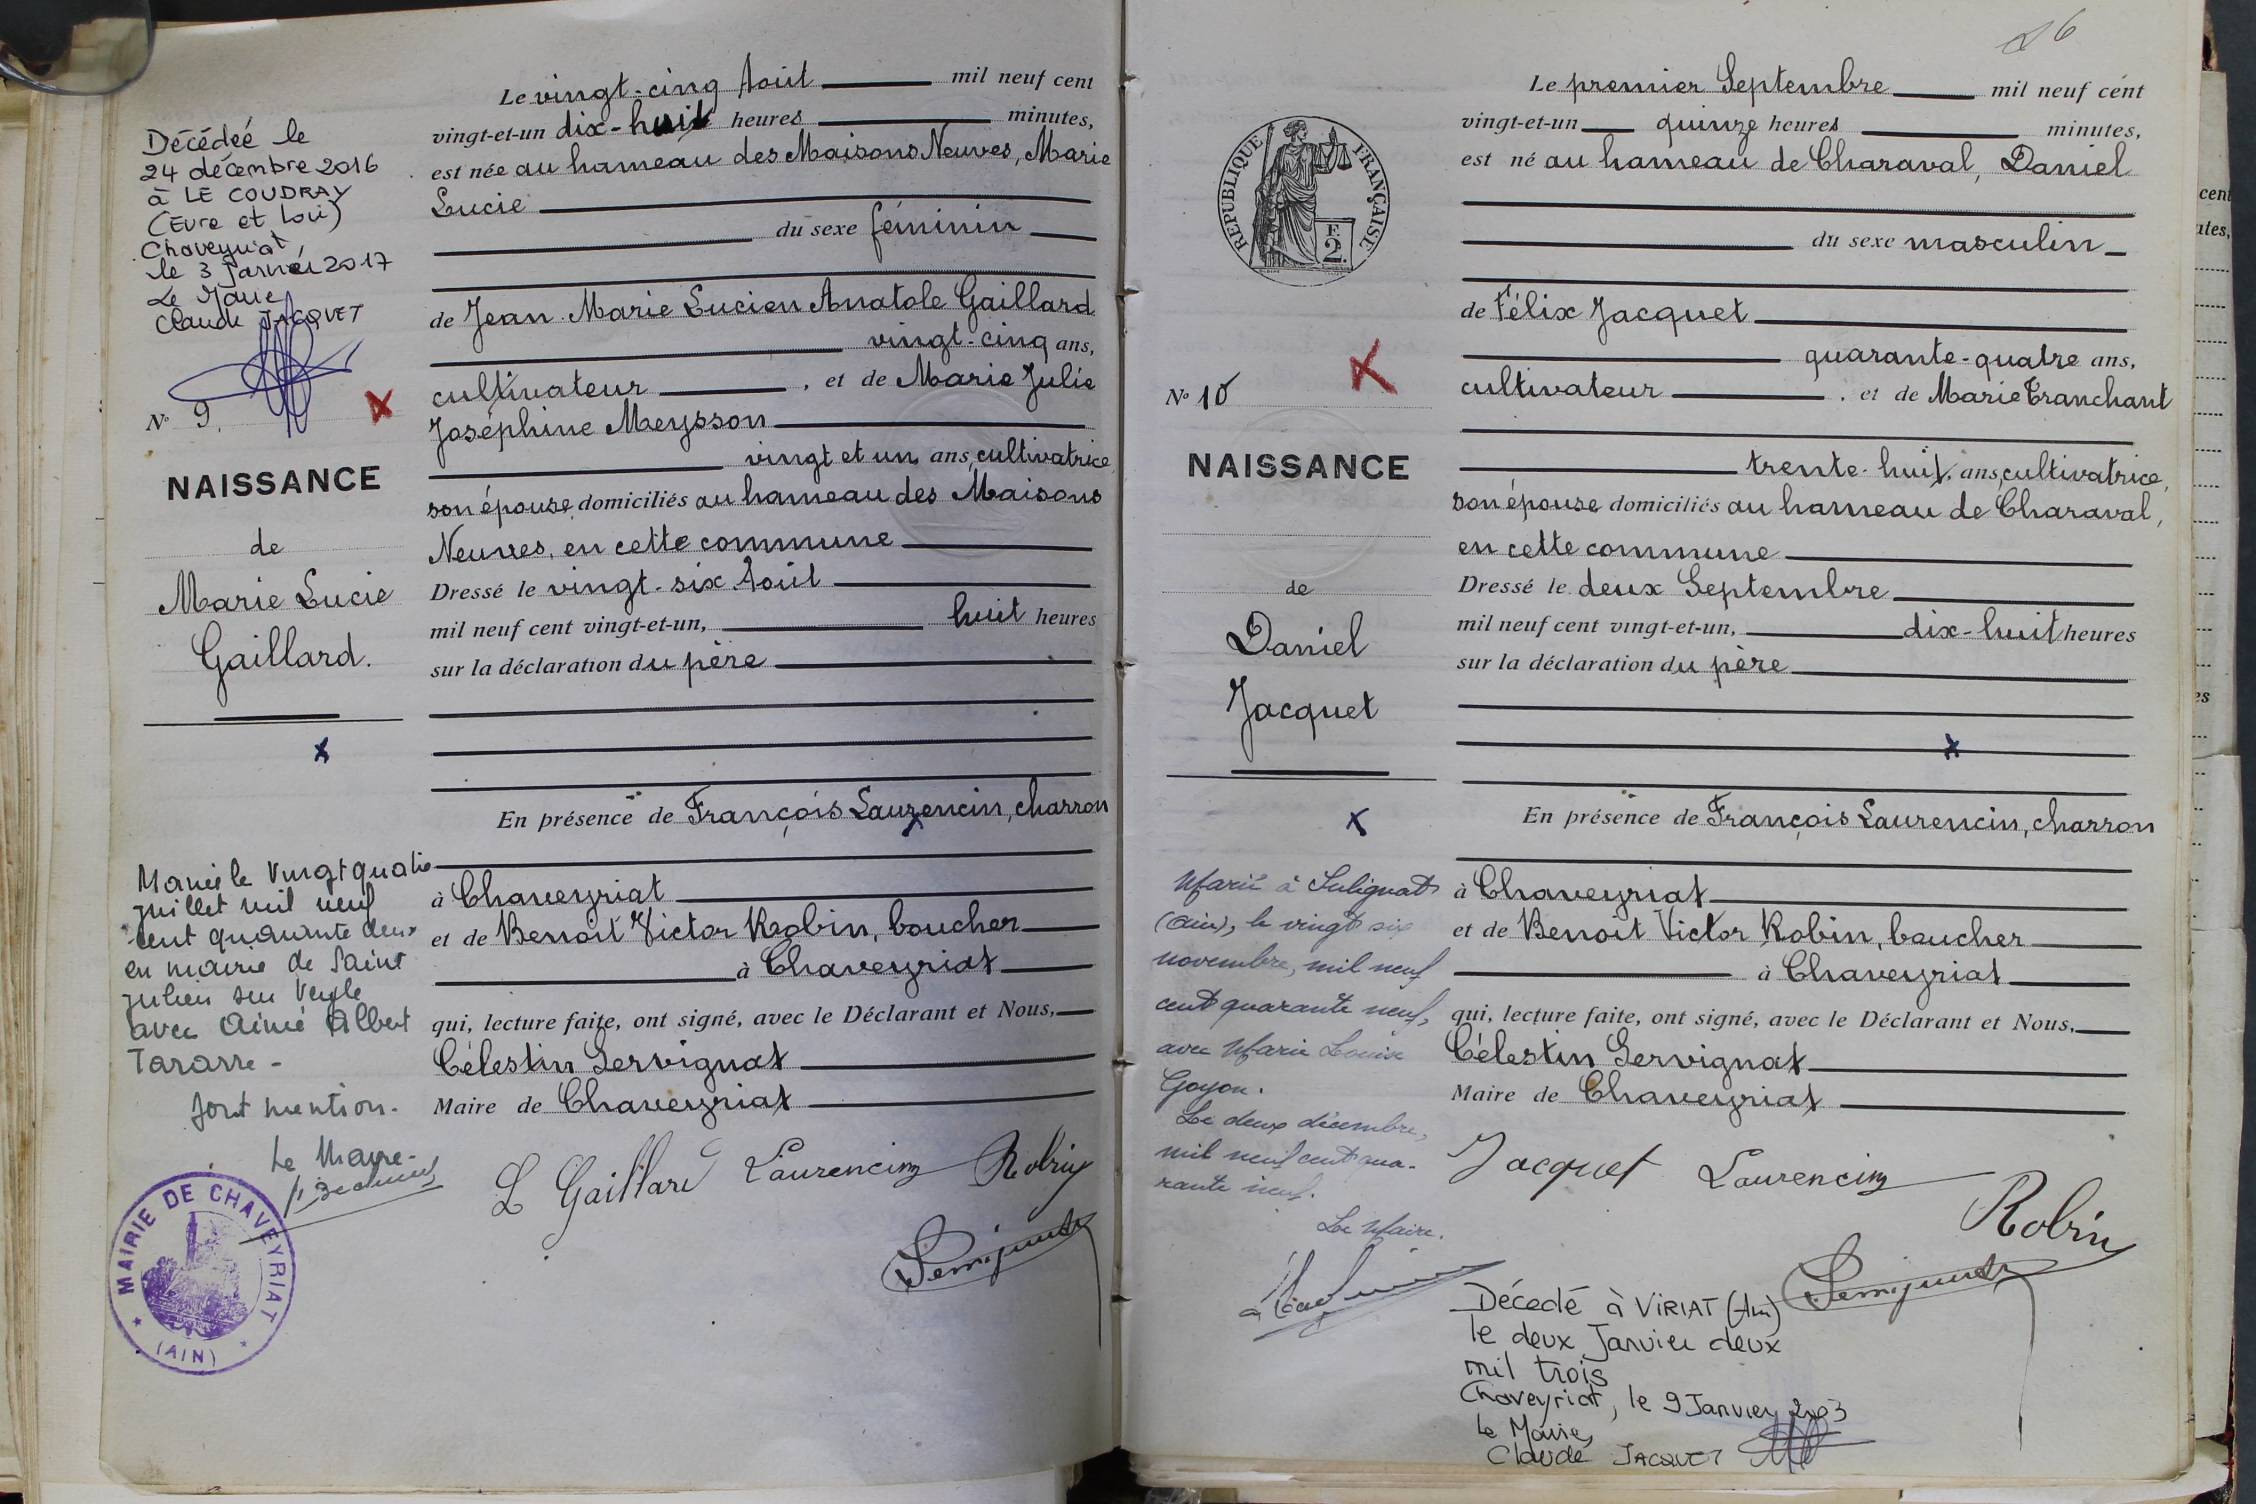 Décédeé le
24 décembre 2016
à LE COUDRAY
(Eure et Loir)
Chaveyriat
le 3 janvier 2017
Le Maire
Claude JACQUET
N° 9.
NAISSANCE
de
Marie Lucie
Gaillard.
Mariée le vingt quatre
juillet mil neuf
cent quarante deux
en mairie de Saint
Julien sur Veyle
avec Aimé Albert
Tararre -
dont mention.
Le Maire -
MAIRIE DE CHAVEYRIAT
(AIN)
Le vingt-cinq Août mil neuf cent
vingt-et-un dix-huit heures minutes,
est née au hameau des Maisons Neuves, Marie
Lucie
du sexe féminin
de Jean Marie Lucien Anatole Gaillard
vingt-cinq ans,
cultivateur , et de Marie Julie
Joséphine Meysson
vingt et un ans, cultivatrice
son épouse domiciliés au hameau des Maisons
Neuves, en cette commune
Dressé le vingt-six Août
mil neuf cent vingt-et-un, huit heures
sur la déclaration du père
En présence de François Laurencin, charron
à Chaveyriat
et de Benoit Victor Robin, boucher
à Chaveyriat
qui, lecture faite, ont signé, avec le Déclarant et Nous,
Célestin Servignat
Maire de Chaveyriat
L Gaillard Laurencin Robin
Servignat
26
RÉPUBLIQUE FRANÇAISE
F.
2.
N° 10
NAISSANCE
de
Daniel
Jacquet
Marié à Sulignat
(Ain), le vingt six
novembre, mil neuf
cent quarante neuf,
avec Marie Louise
Goyon.
Le deux décembre,
mil neuf cent qua-
rante neuf.
Le Maire.
Le premier Septembre mil neuf cent
vingt-et-un quinze heures minutes,
est né au hameau de Charaval, Daniel
du sexe masculin
de Félix Jacquet
quarante-quatre ans,
cultivateur , et de Marie Tranchant
trente-huit ans, cultivatrice,
son épouse domiciliés au hameau de Charaval,
en cette commune
Dressé le deux Septembre
mil neuf cent vingt-et-un, dix-huit heures
sur la déclaration du père
En présence de François Laurencin, charron
à Chaveyriat
et de Benoit Victor Robin, boucher
à Chaveyriat
qui, lecture faite, ont signé, avec le Déclarant et Nous,
Célestin Servignat
Maire de Chaveyriat
Jacquet Laurencin
Robin
Servignat
Décédé à VIRIAT (Ain)
le deux Janvier deux
mil trois
Chaveyriat, le 9 Janvier 2003
Le Maire,
Claude JACQUET